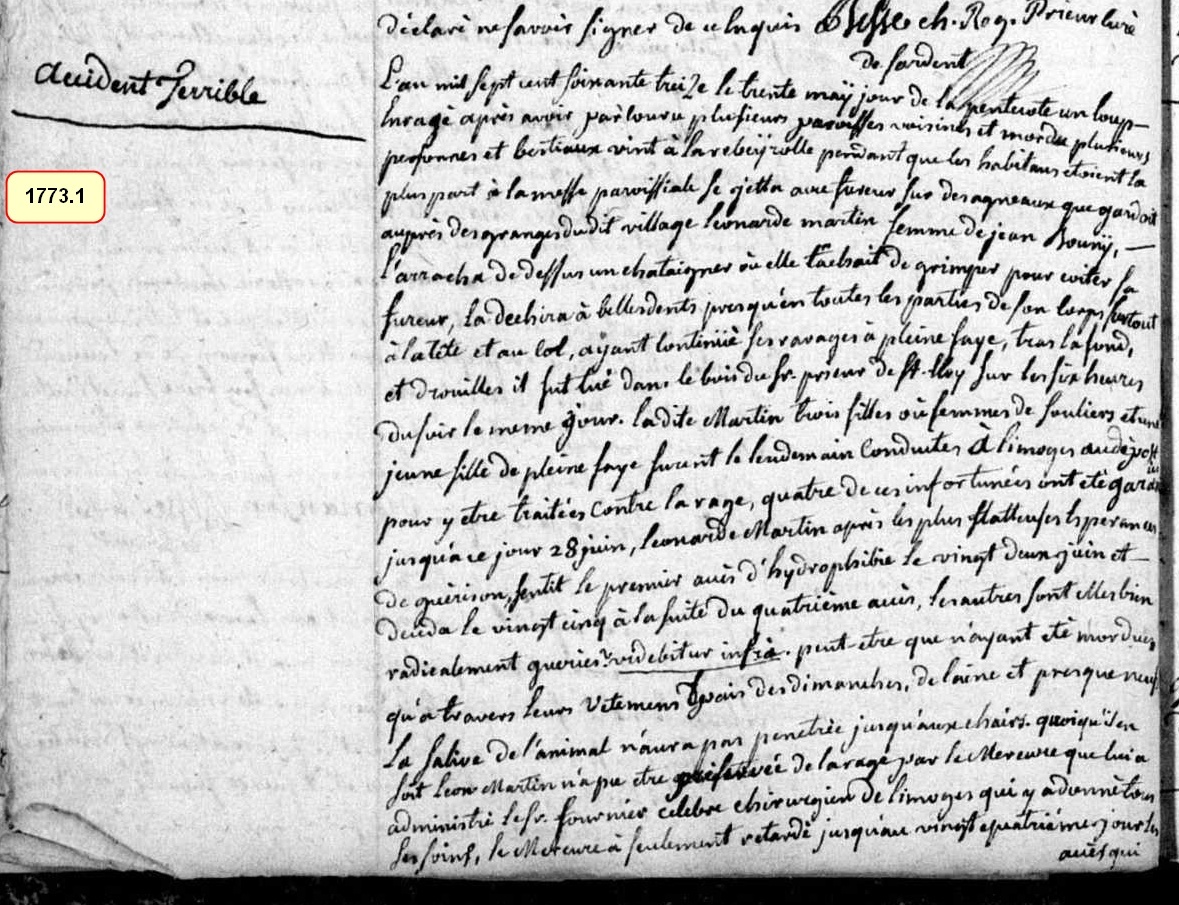 déclaré ne savoir signer de ce enquis ch. Reg. Prieur curé
de sardent
accident Terrible
1773.1
L'an mil sept cent soixante treize le trente maÿ jour de la pentecote un loup
enragé après avoir parcouru plusieurs paroisses voisines et mordu plusieurs
personnes et bestiaux vint à la rebeÿrolle pendant que les habitans etoient la
plus part à la messe paroissiale se gjetta avec fureur sur des agneaux que gardoit
auprès des granges du dit village leonarde martin femme de jean Bounÿ, —
l'arracha de dessus un chataigner où elle tachait de grimper pour eviter sa
fureur, la dechira à belles dents presqu'en toutes les parties de son corps surtout
à la tête et au col, aÿant continüé ses ravages à pleine faye, tras la fond,
et drouilles il fut tué dans le bois du sr. prieur de st. Eloy sur les six heures
du soir le meme jour. ladite Martin trois filles où femmes de souliers et une
jeune fille de pleine faye furent le lendemain conduites à limoges au depost
pour y etre traitées contre la rage, quatre de ces infortunées ont été
jusqu'a ce jour 28 juin, leonarde Martin après les plus flatteuses esperances
de guerison, sentit le premier accès d'hydrophibie le vingt deux juin et —
deceda le vingt cinq à la suite du quatrième accès, les autres sont elles bien
radicalement gueries? videbitur infrà. peut-etre que n'ayant eté mordues
qu'a travers leurs vetemens epais des dimanches, de laine et presque neufs
la salive de l'animal n'aura pas penetrée jusqu'aux chairs. quoiqu'il en
soit Leon Martin n'a pu etre préservée de la rage par le Mercure que lui a
administré le sr. fournier celebre chirurgien de limoges qui y a donné tous
ses soins, le Mercure à seulement retardé jusqu'au vingt quatrième jour les
accès qui